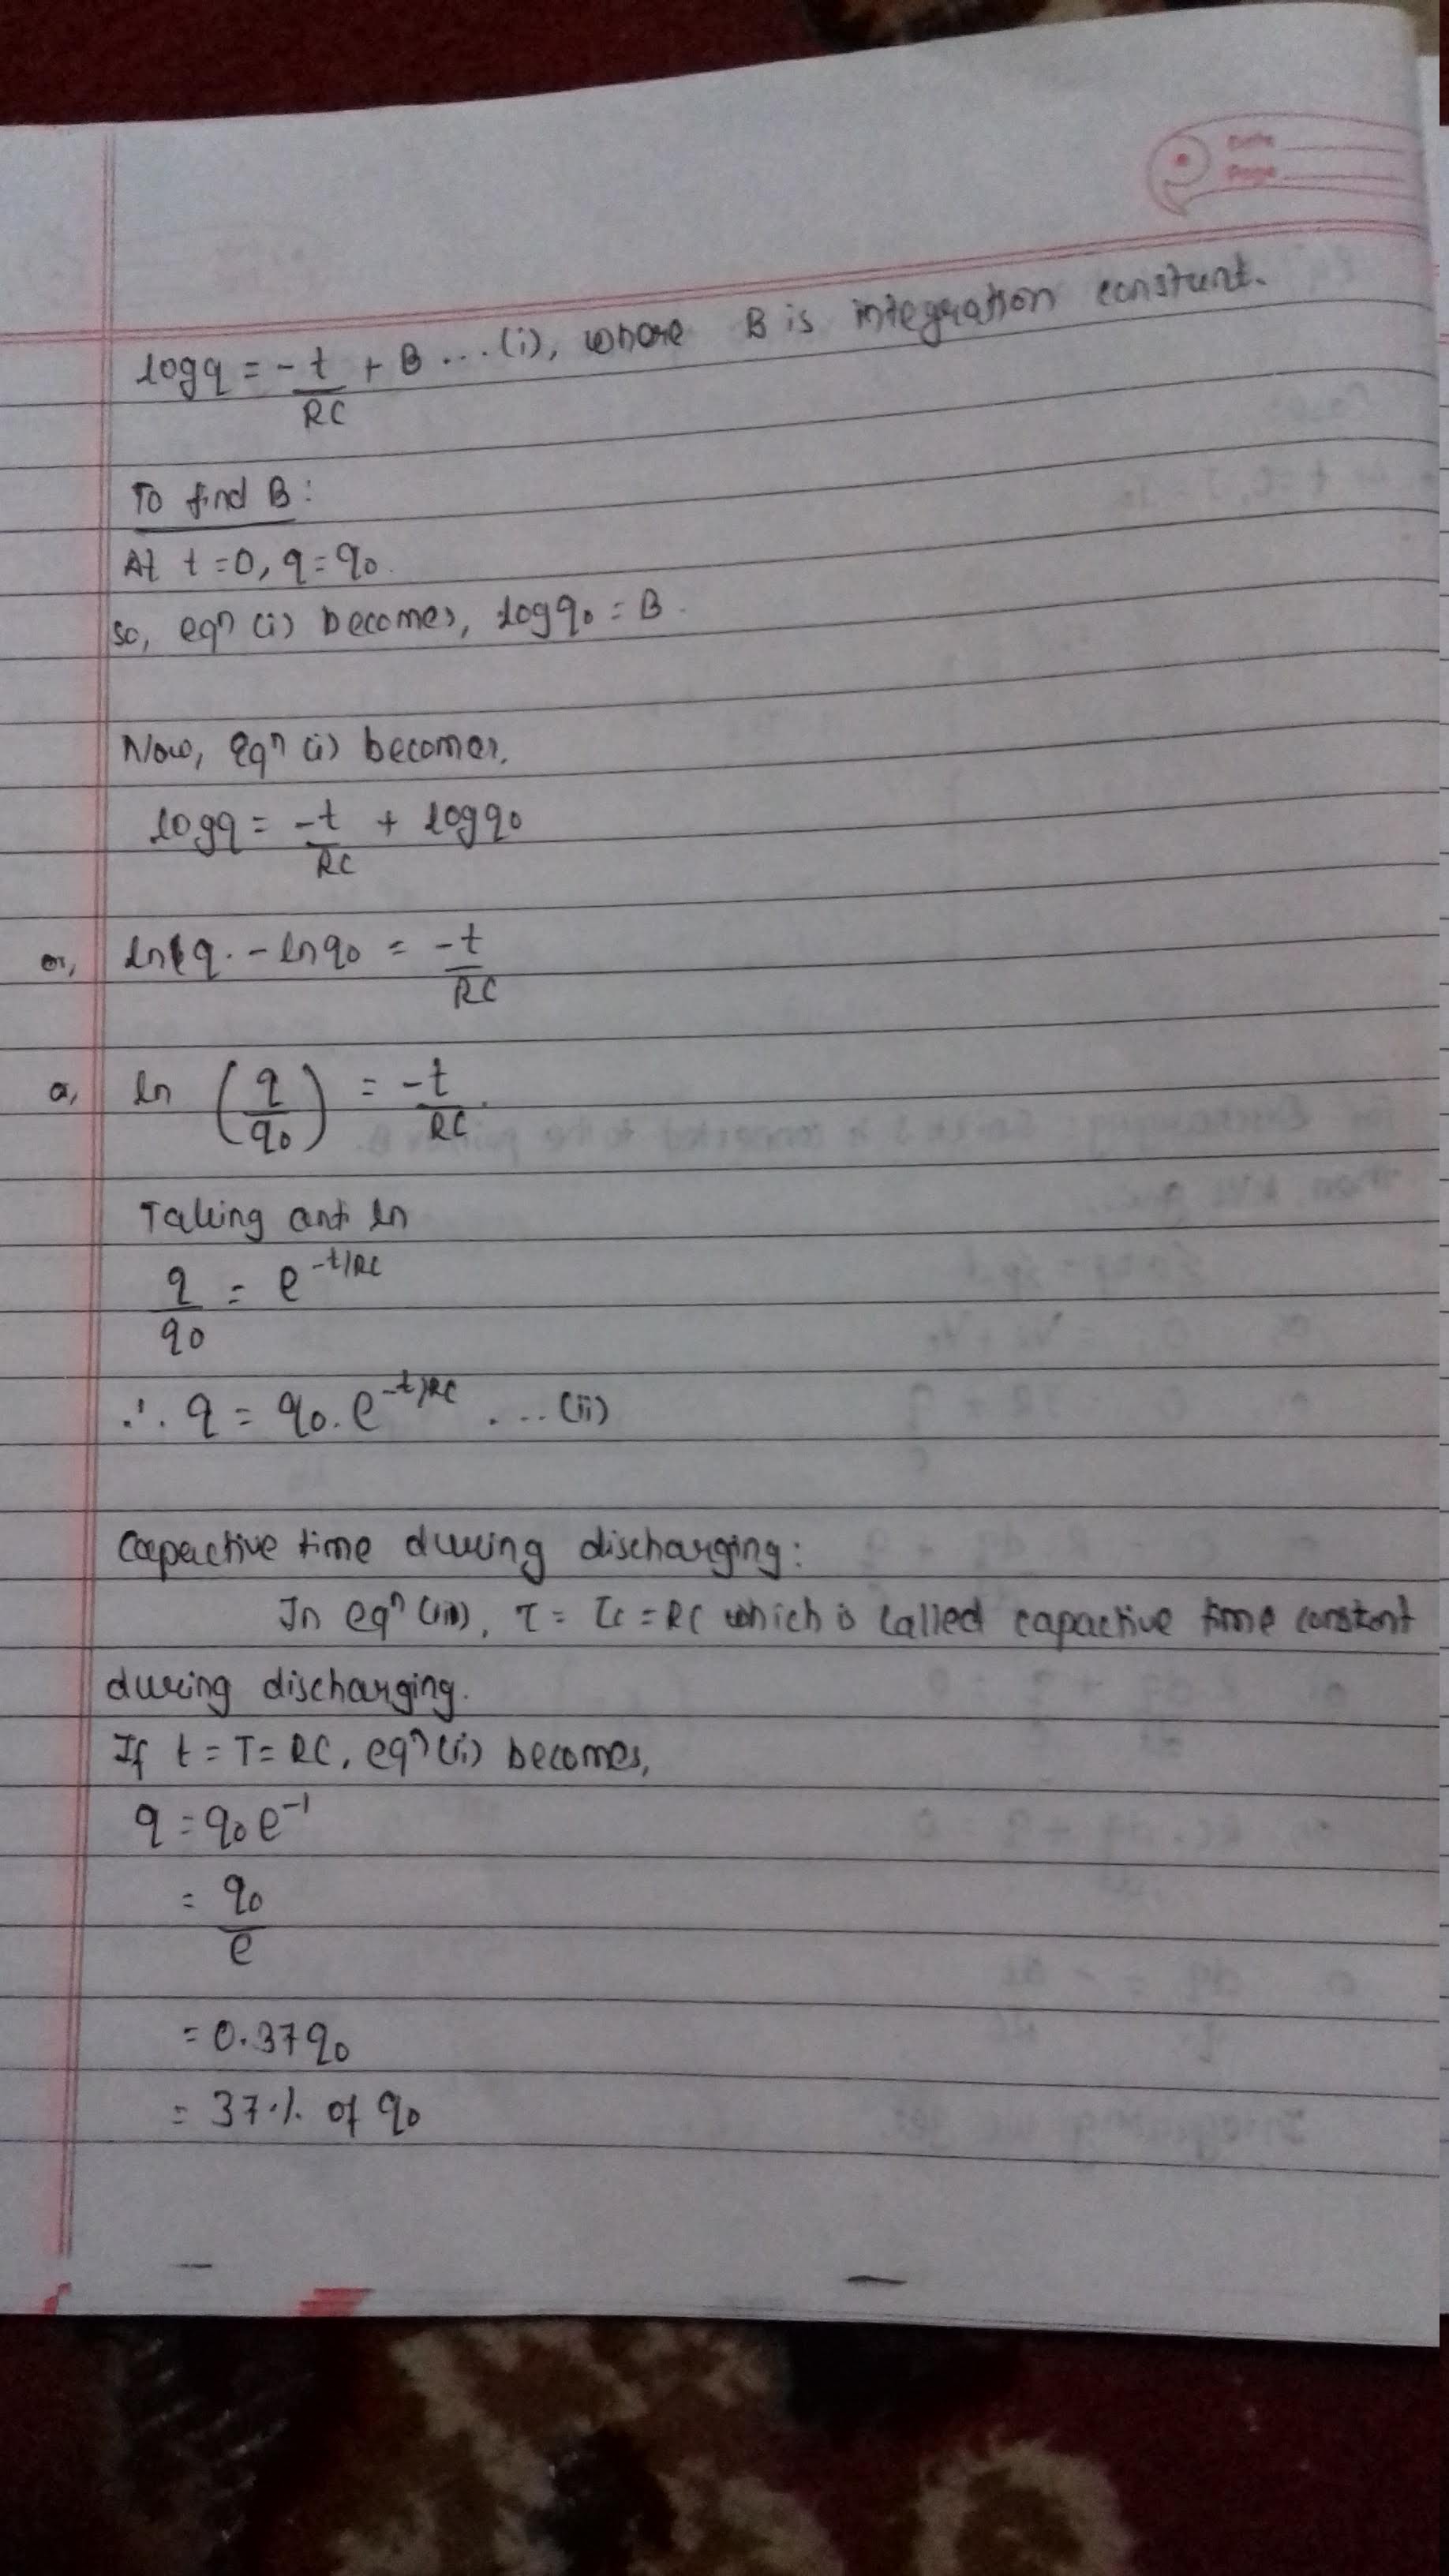 Date
Page
log q = -t/RC + B ...(i), where B is integration constant.
To find B:
At t=0, q=q0
so, eqn (i) becomes, log q0 = B.
Now, eqn (i) becomes,
log q = -t/RC + log q0
or, ln q - ln q0 = -t/RC
or, ln (q/q0) = -t/RC
Taking anti ln
q/q0 = e^-t/RC
∴ q = q0.e^-t/RC ...(ii)
Capactive time during discharging:
In eqn (iii), τ = τc = RC which is called capactive time constant
during discharging.
If t = T = RC, eqn (ii) becomes,
q = q0 e^-1
= q0/e
= 0.37q0
= 37% of q0